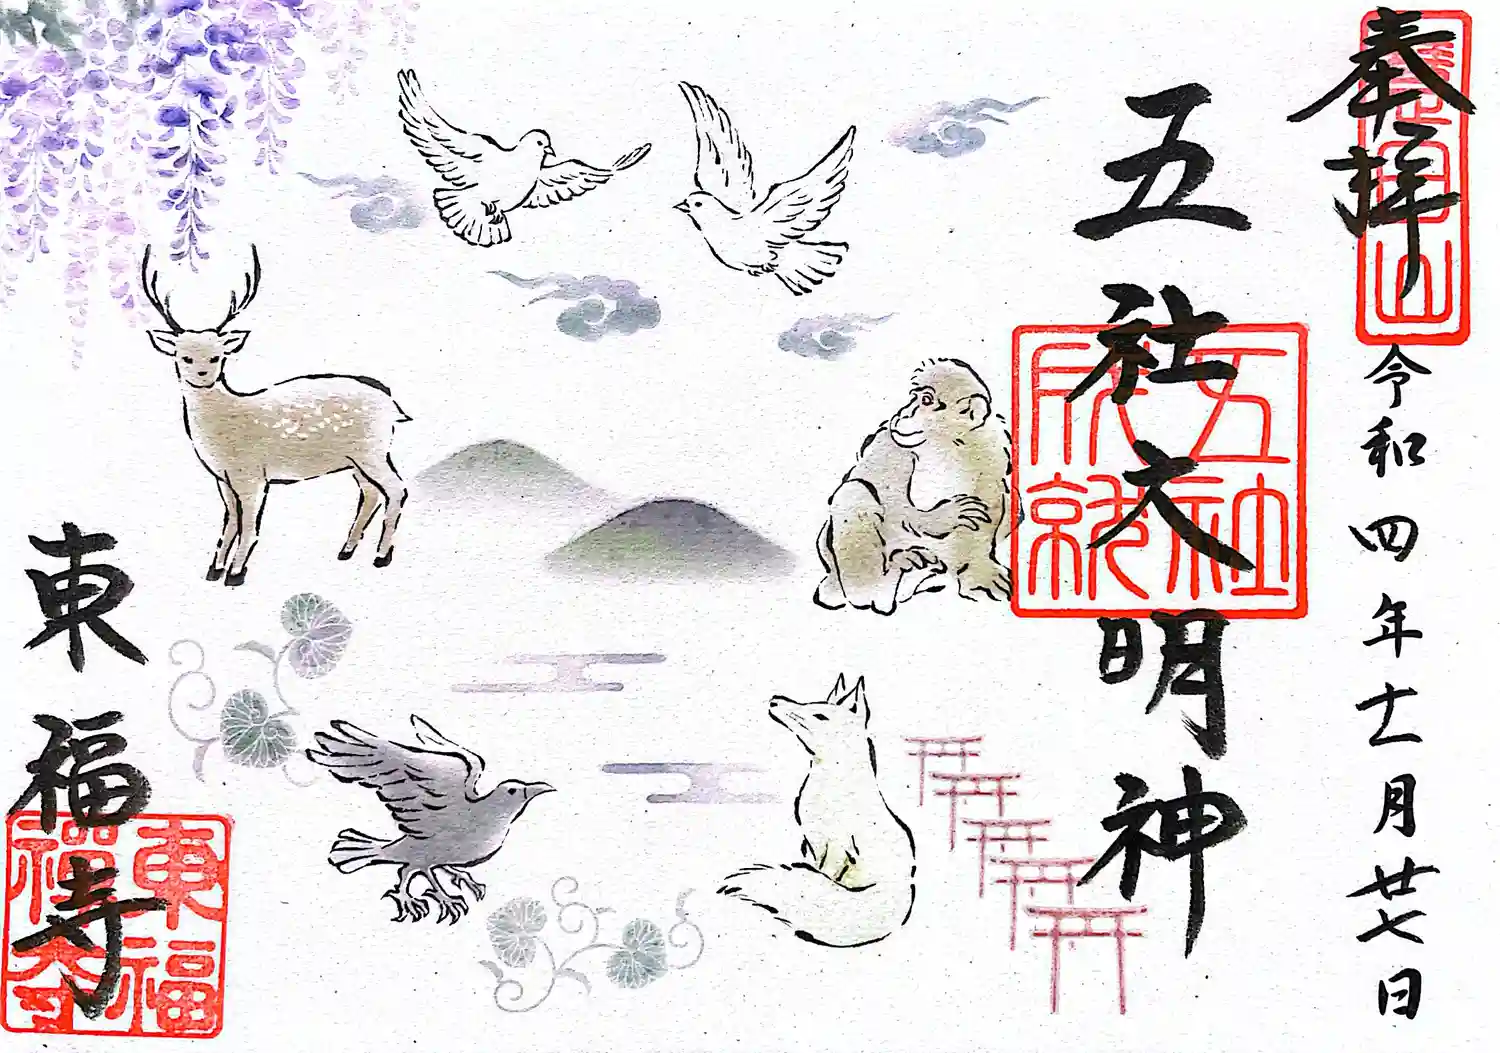 奉拝
令和四年十一月廿七日
五社大明神
五社
成就
東福寺
東福
禪寺